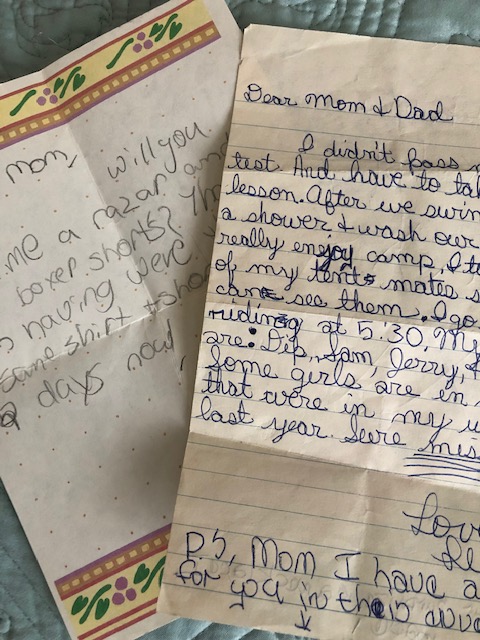 mom, will you
me a razar and
boxer shorts?
having were
same shirt + shor
days now,
Dear Mom & Dad
I didn't pass
test. And have to ta
lesson. After we swim
a shower & wash our
really enjoy camp. I
of my tent mates s
can see them. I go
riding at 5:30. My
are: Dip, Sam, Jerry,
Some girls are in
that were in my u
last year. Were mis
Love
P.S, Mom I have a
for you in the